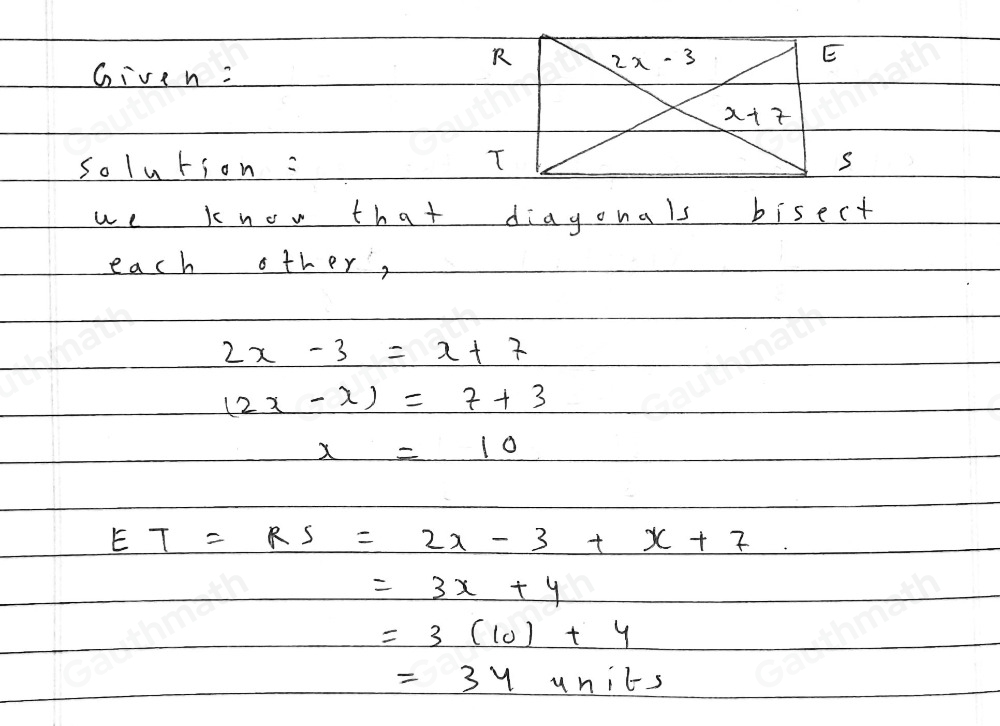 Given :
R 2x - 3 E
x + 7
T S
Solution :
we know that diagonals bisect
each other,
2x - 3 = x + 7
(2x - x) = 7 + 3
x = 10
ET = RS = 2x - 3 + x + 7.
= 3x + 4
= 3 (10) + 4
= 34 units
Gauthmath